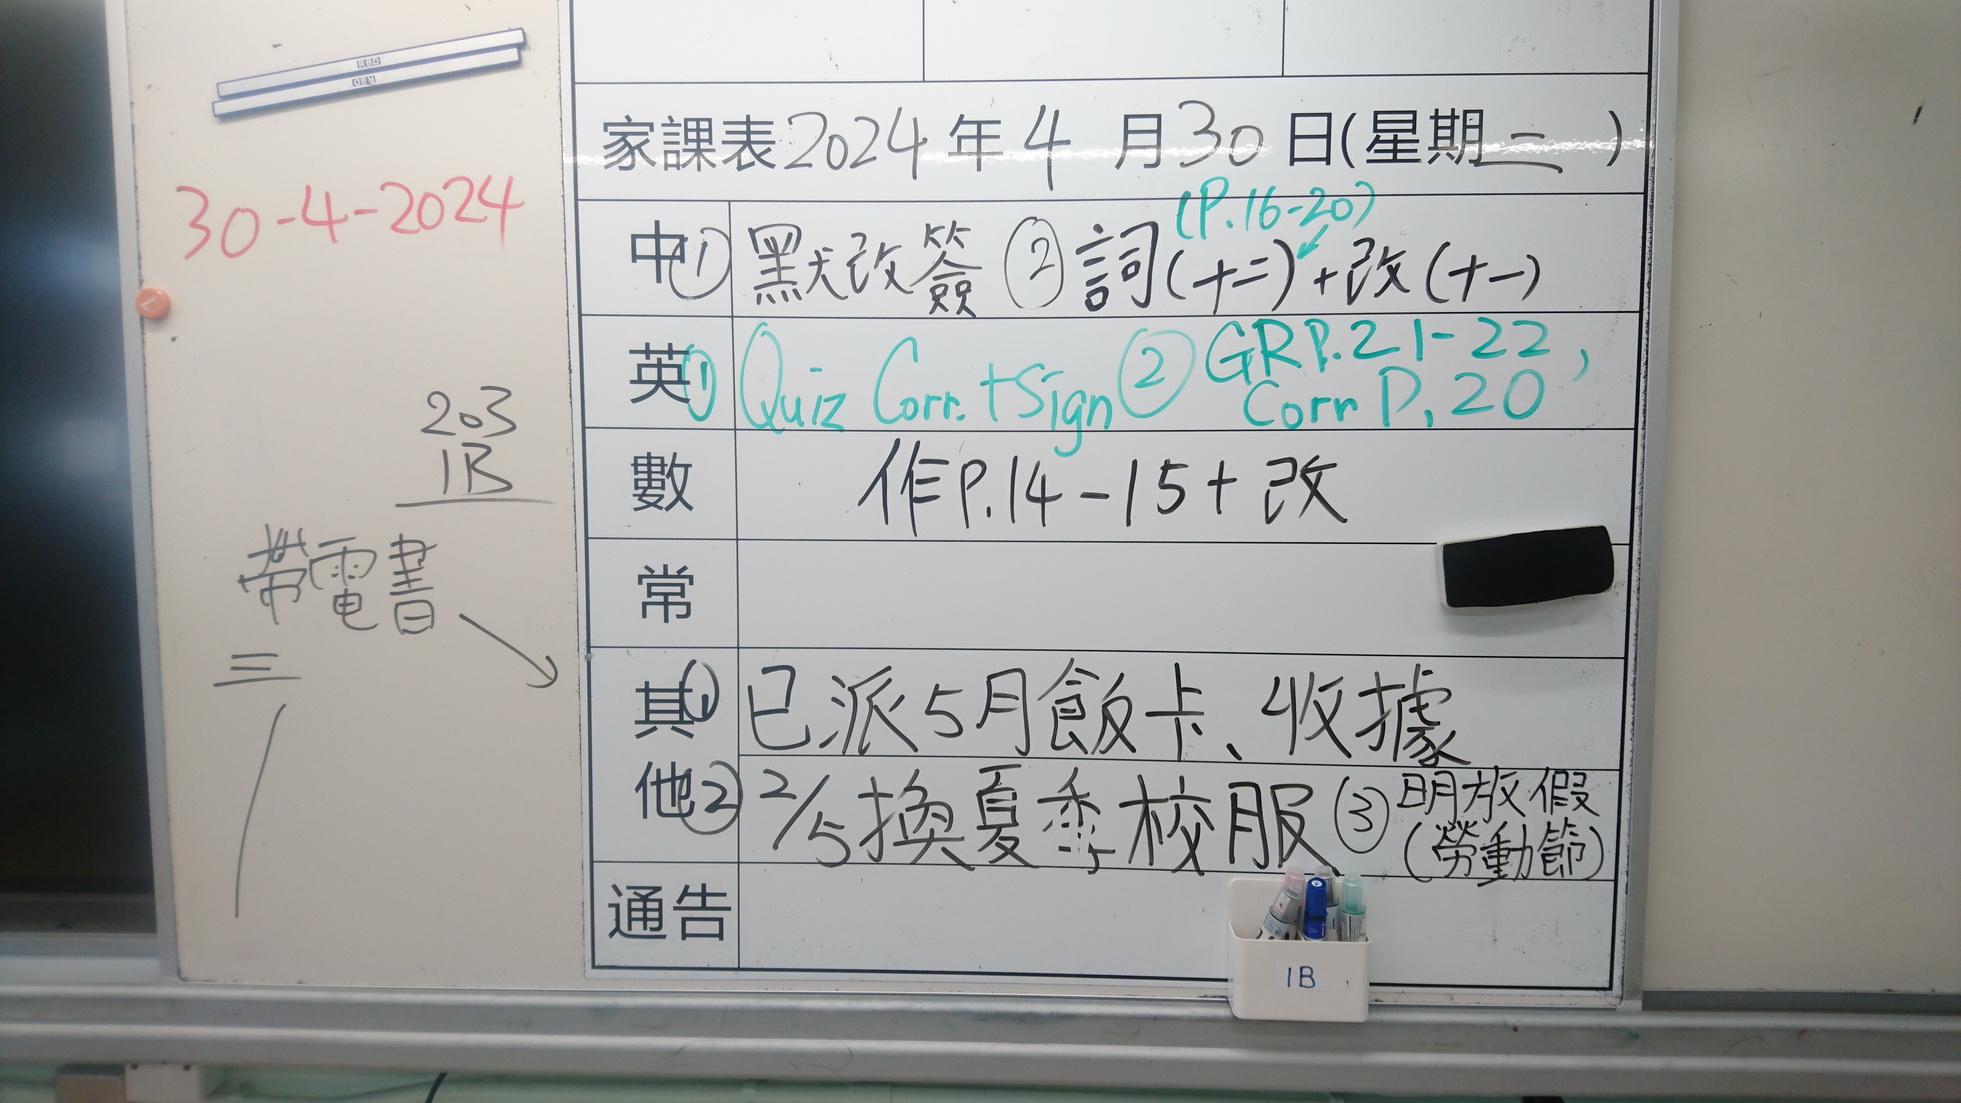 R&Q
R&Q
30-4-2024
203
1B
帶電書
三
家課表2024年4月30日(星期二)
(P.16-20)
中① 默改簽 ② 詞(十二)+改(十一)
英① Quiz Corr.+Sign ② GR P.21-22,
Corr P.20
數 作P.14-15+改
常
其① 已派5月飯卡、收據
他② 2/5換夏季校服 ③ 明放假
(勞動節)
通告
1B